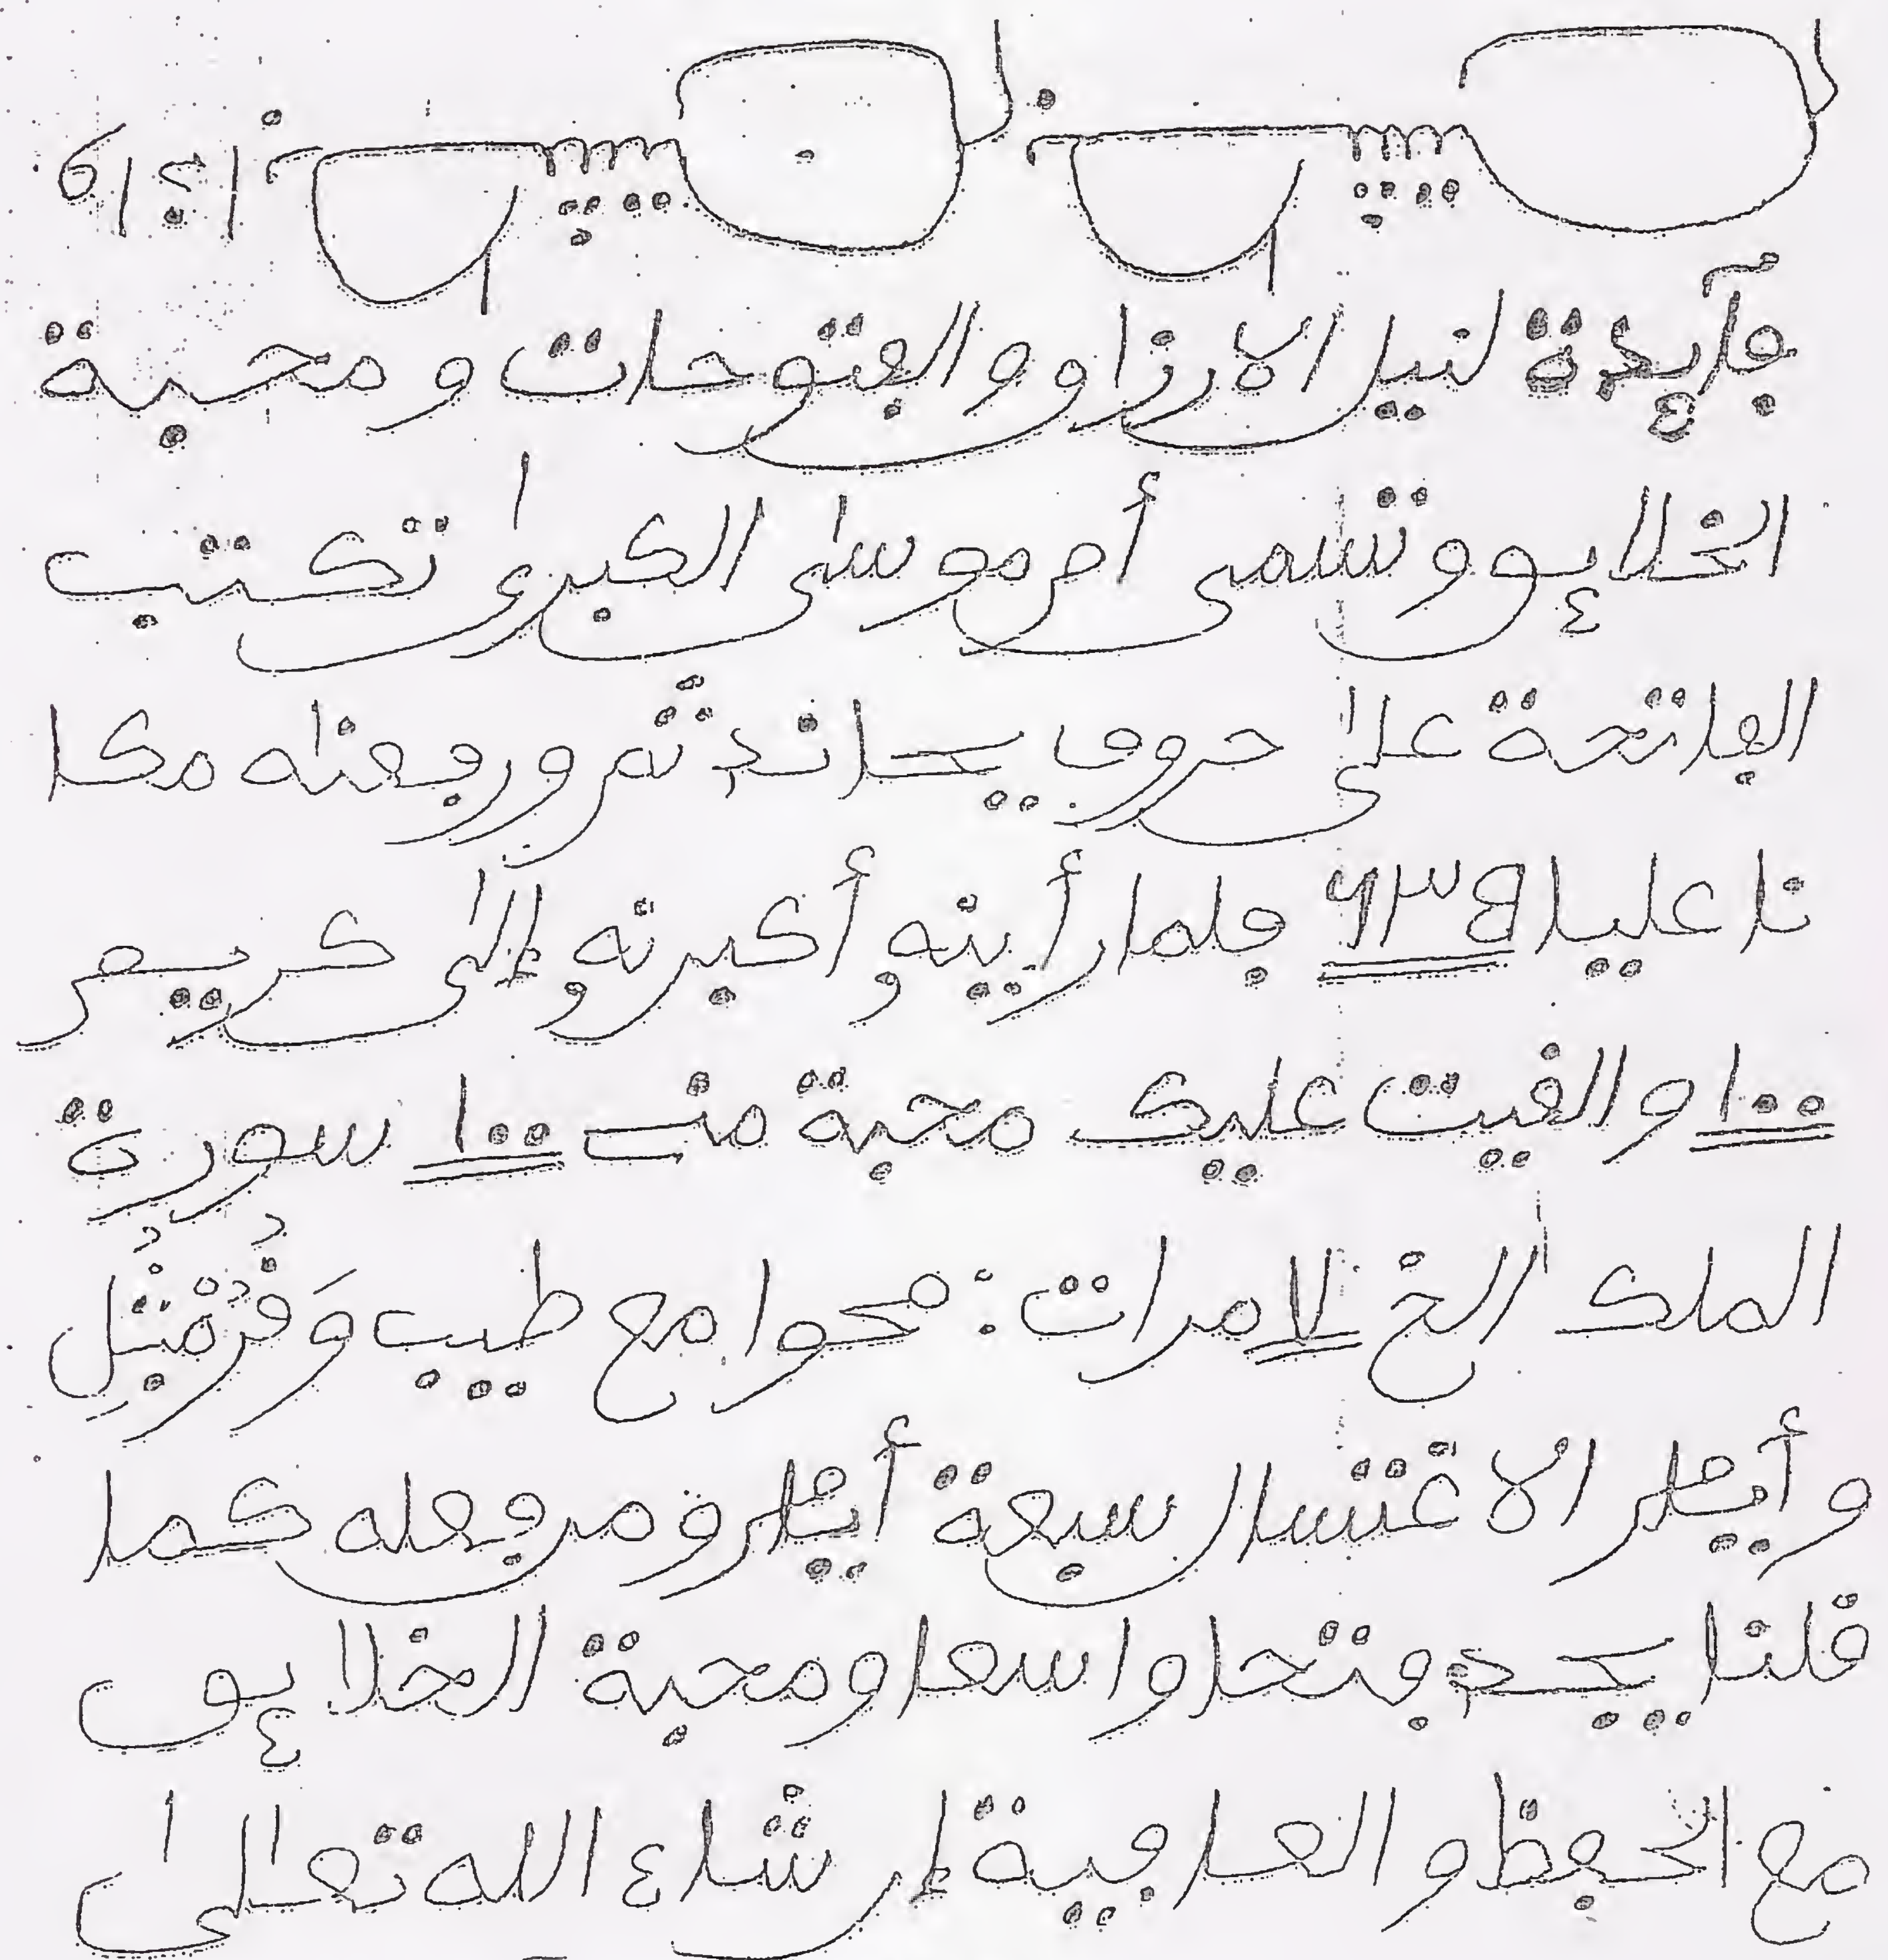 فآيدة لنيل الارزاق والفتوحات ومحبة
الخلايق وتسمى أم موسى الكبرى تكتب
الفاتحة على حروف ثم ورفعنه مكا
نا عليا فلما رأينه وأكبرنه وإلى كريم
١٠٠ والقيت عليك محبة منے ١٠٠ سورة
الملك الخ لا مرات : محوا مع طيب وَقُرُنْفُلِ
وأيام الاغتسال سبعة أيام ومن فعله كما
قلنا يجد فتحا واسعا ومحبة الخلايق
مع الحفظ والعافية إن شاء الله تعالى